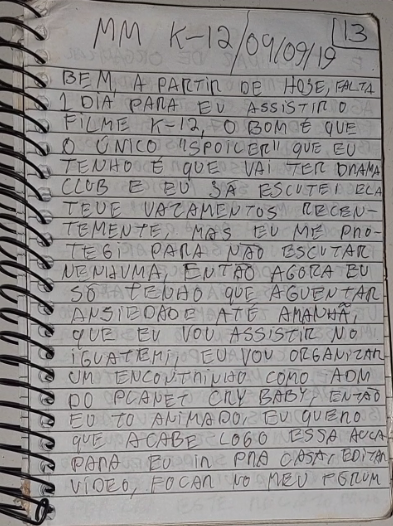 MM K-12/09/09/19 13
BEM, A PARTIR DE HOJE, FALTA
1 DIA PARA EU ASSISTIR O
FILME K-12, O BOM É QUE
O ÚNICO "SPOILER" QUE EU
TENHO É QUE VAI TER DRAMA
CLUB E EU JÁ ESCUTEI ELA
TEVE VAZAMENTOS RECEN-
TEMENTE, MAS EU ME PRO-
TEGI PARA NÃO ESCUTAR
NENHUMA, ENTÃO AGORA EU
SÓ TENHO QUE AGUENTAR
ANSIEDADE ATÉ AMANHÃ,
QUE EU VOU ASSISTIR NO
IGUATEMI, EU VOU ORGANIZAR
UM ENCONTRINHO COMO ADM
DO PLANET CRY BABY, ENTÃO
EU TO ANIMADO, EU QUERO
QUE ACABE LOGO ESSA AULA
PARA EU IR PRA CASA, EDITAR
VÍDEO, FOCAR NO MEU FORUM